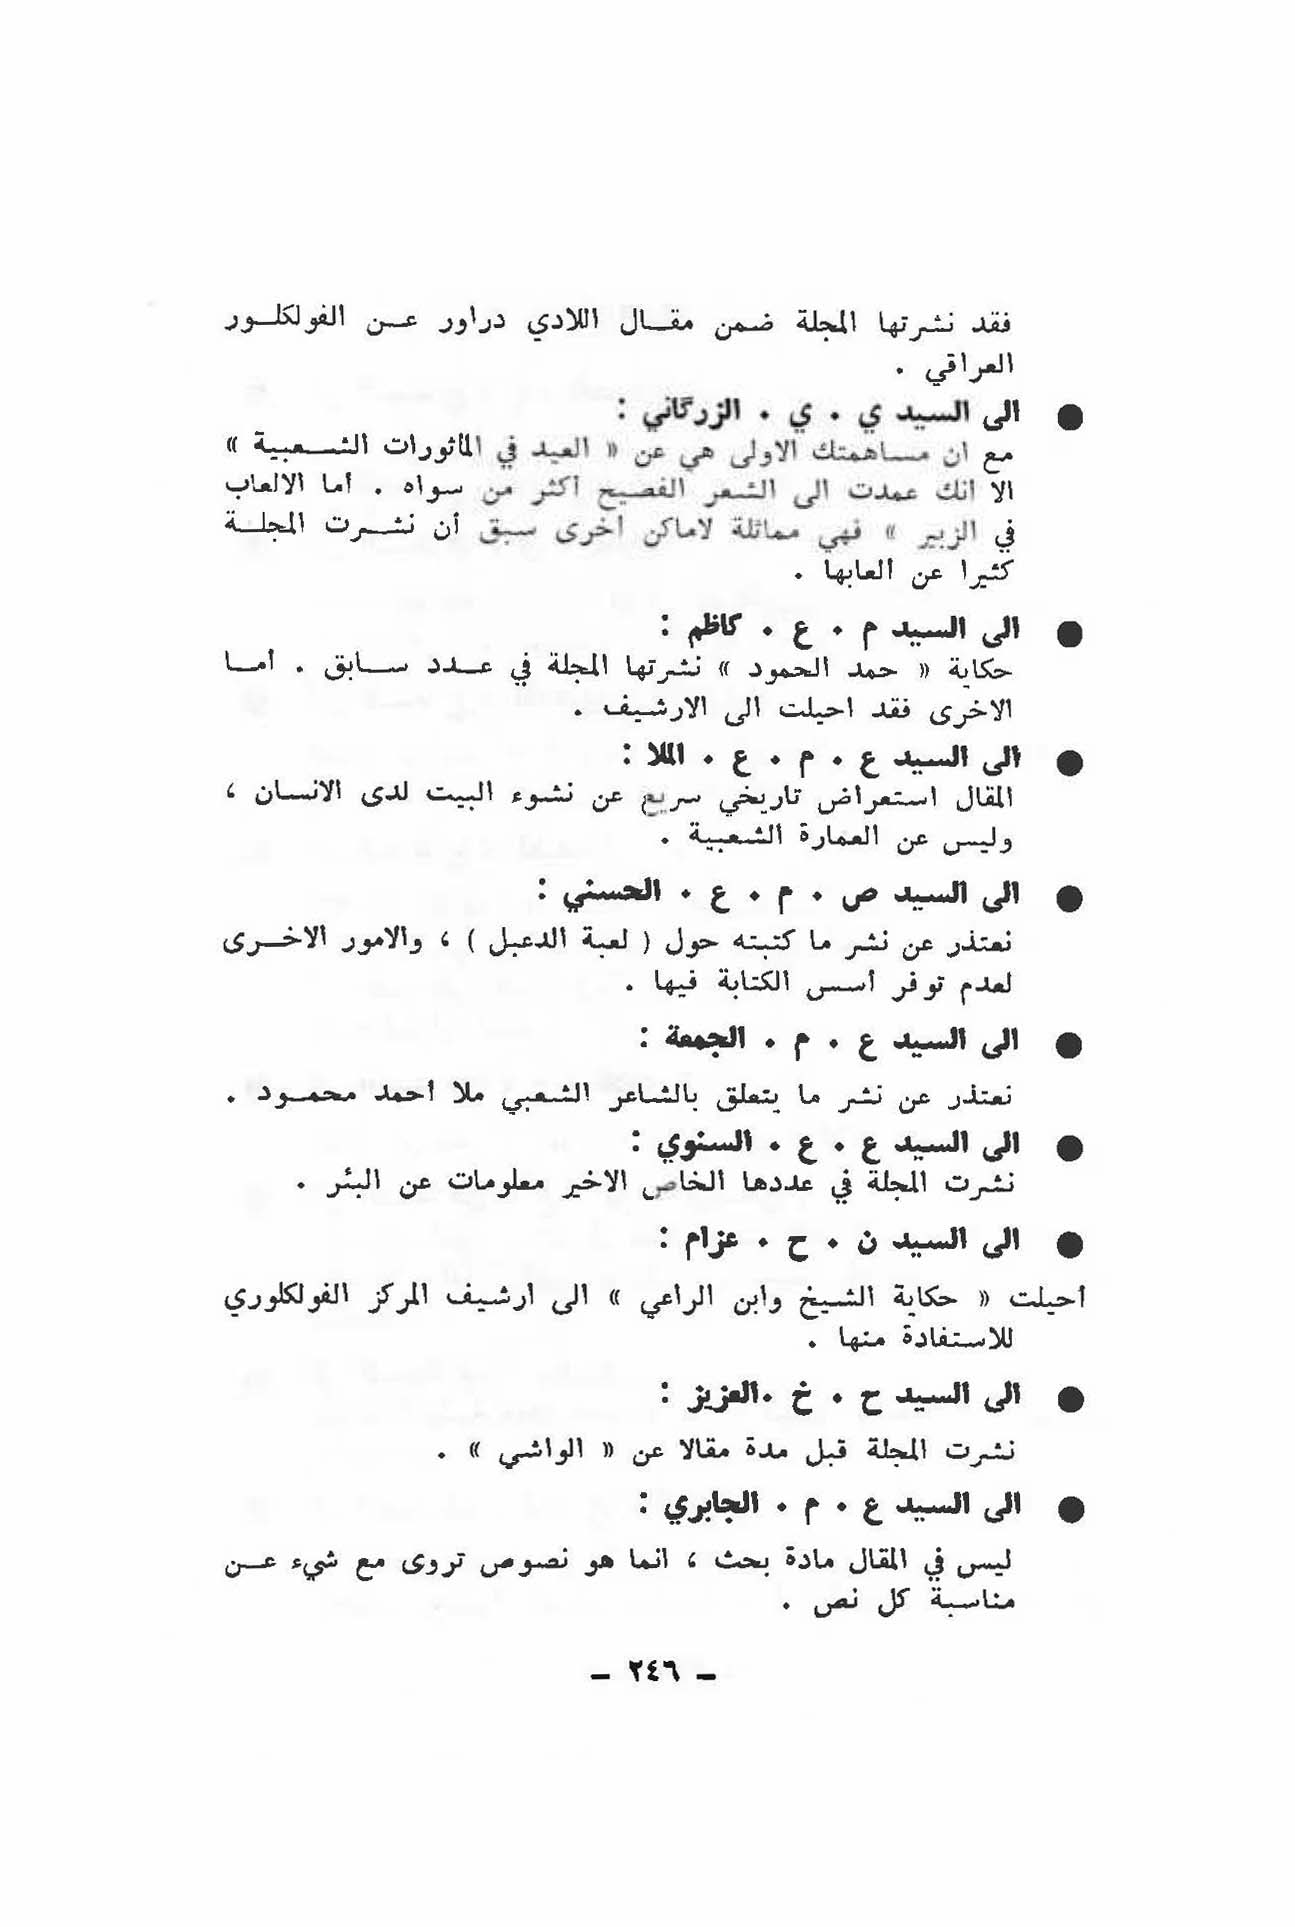 فقد نشرتها المجلة ضمن مقال اللادي دراور عن الفولكلور
العراقي .
● الى السيد ي . ي . الزرگاني :
مع ان مساهمتك الاولى هي عن « العيد في المأثورات الشعبية »
الا انك عمدت الى الشعر الفصيح أكثر من سواه . أما الالعاب
في الزبير » فهي مماثلة لاماكن أخرى سبق أن نشرت المجلة
كثيرا عن ألعابها .
● الى السيد م . ع . كاظم :
حكاية « حمد الحمود » نشرتها المجلة في عدد سابق . أما
الاخرى فقد احيلت الى الارشيف .
● الى السيد ع . م . ع . الملا :
المقال استعراض تاريخي سريع عن نشوء البيت لدى الانسان ،
وليس عن العمارة الشعبية .
● الى السيد ص . م . ع . الحسني :
نعتذر عن نشر ما كتبته حول ( لعبة الدعبل ) ، والامور الاخرى
لعدم توفر أسس الكتابة فيها .
● الى السيد ع . م . الجمعة :
نعتذر عن نشر ما يتعلق بالشاعر الشعبي ملا أحمد محمود .
● الى السيد ع . ع . السنوي :
نشرت المجلة في عددها الخاص الاخير معلومات عن البئر .
● الى السيد ن . ح . عزام :
أحيلت « حكاية الشيخ وابن الراعي » الى أرشيف المركز الفولكلوري
للاستفادة منها .
● الى السيد ح . خ .العزيز :
نشرت المجلة قبل مدة مقالا عن « الواشي » .
● الى السيد ع . م . الجابري :
ليس في المقال مادة بحث ، انما هو نصوص تروى مع شيء عن
مناسبة كل نص .
– ٢٤٦ –